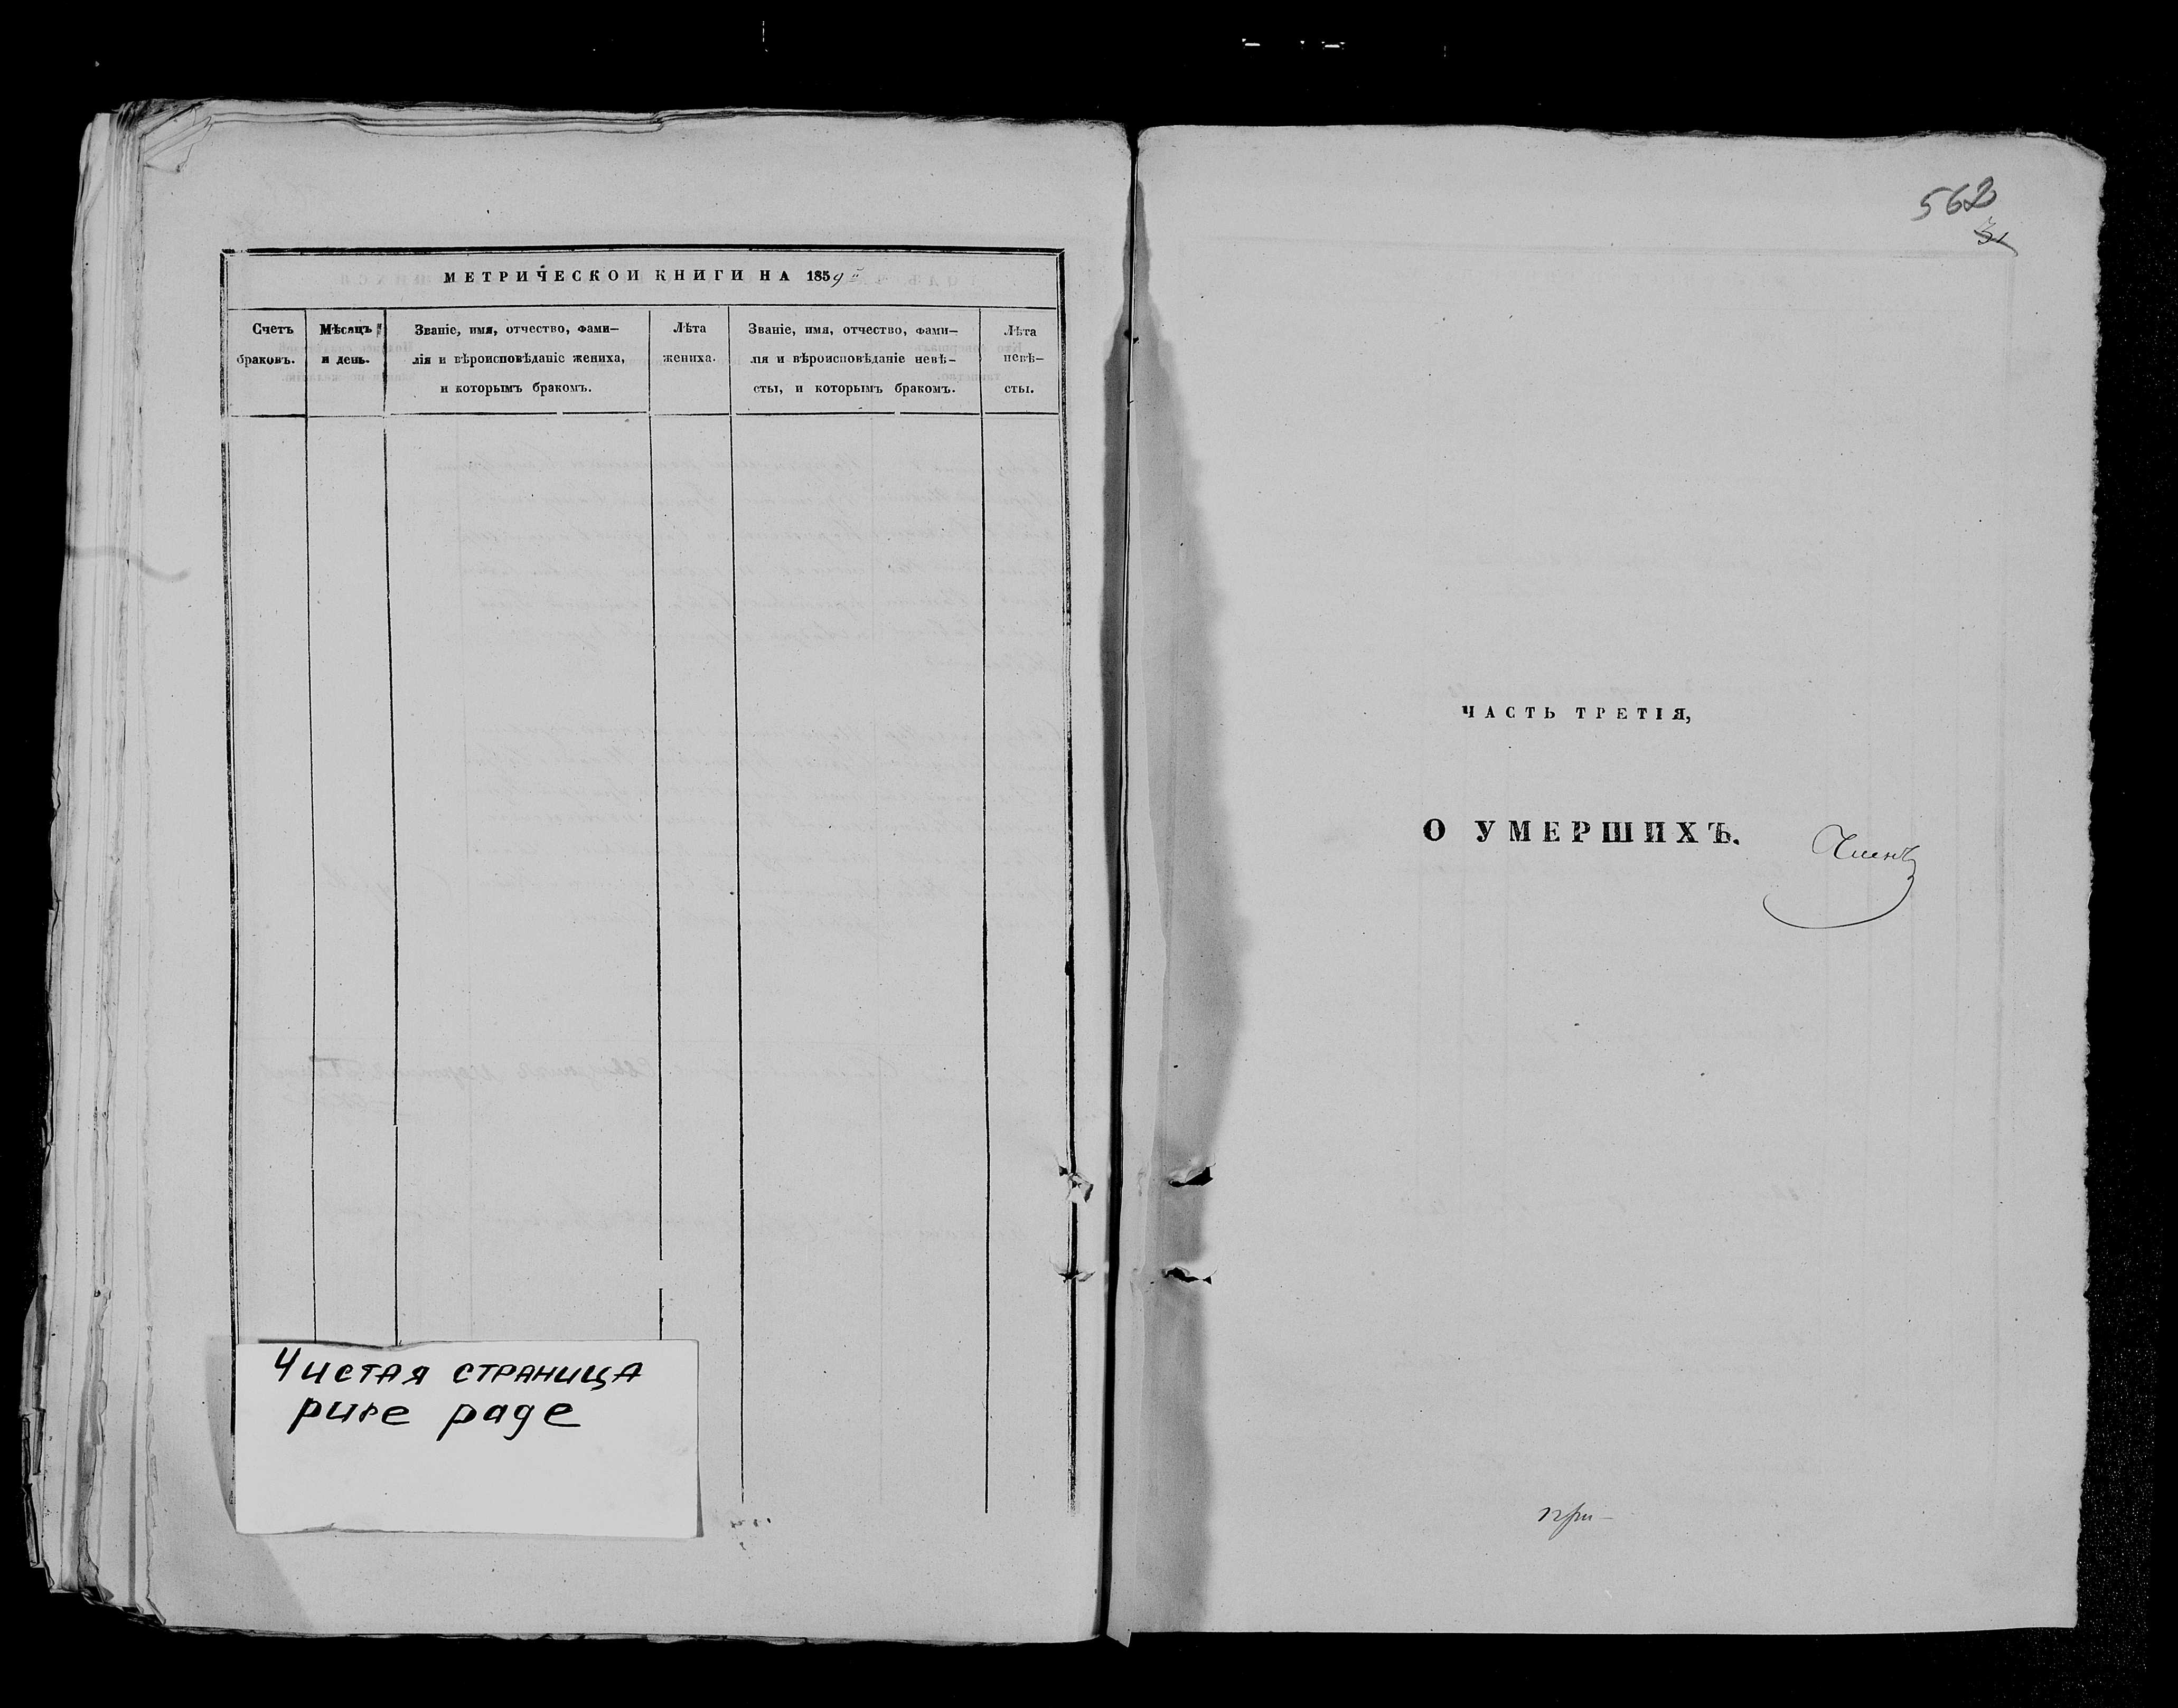 МЕТРИЧЕСКОЙ КНИГИ НА 1859й
Счетъ
браковъ.
Мѣсяцъ
и день.
Званіе, имя, отчество, фами-
лія и вѣроисповѣданіе жениха,
и которымъ бракомъ.
Лѣта
жениха.
Званіе, имя, отчество, фами-
лія и вѣроисповѣданіе невѣ-
сты, и которымъ бракомъ.
Лѣта
невѣ-
сты.
Чистая страница
pure page
562
31
ЧАСТЬ ТРЕТІЯ,
О УМЕРШИХЪ.
Членъ
при-